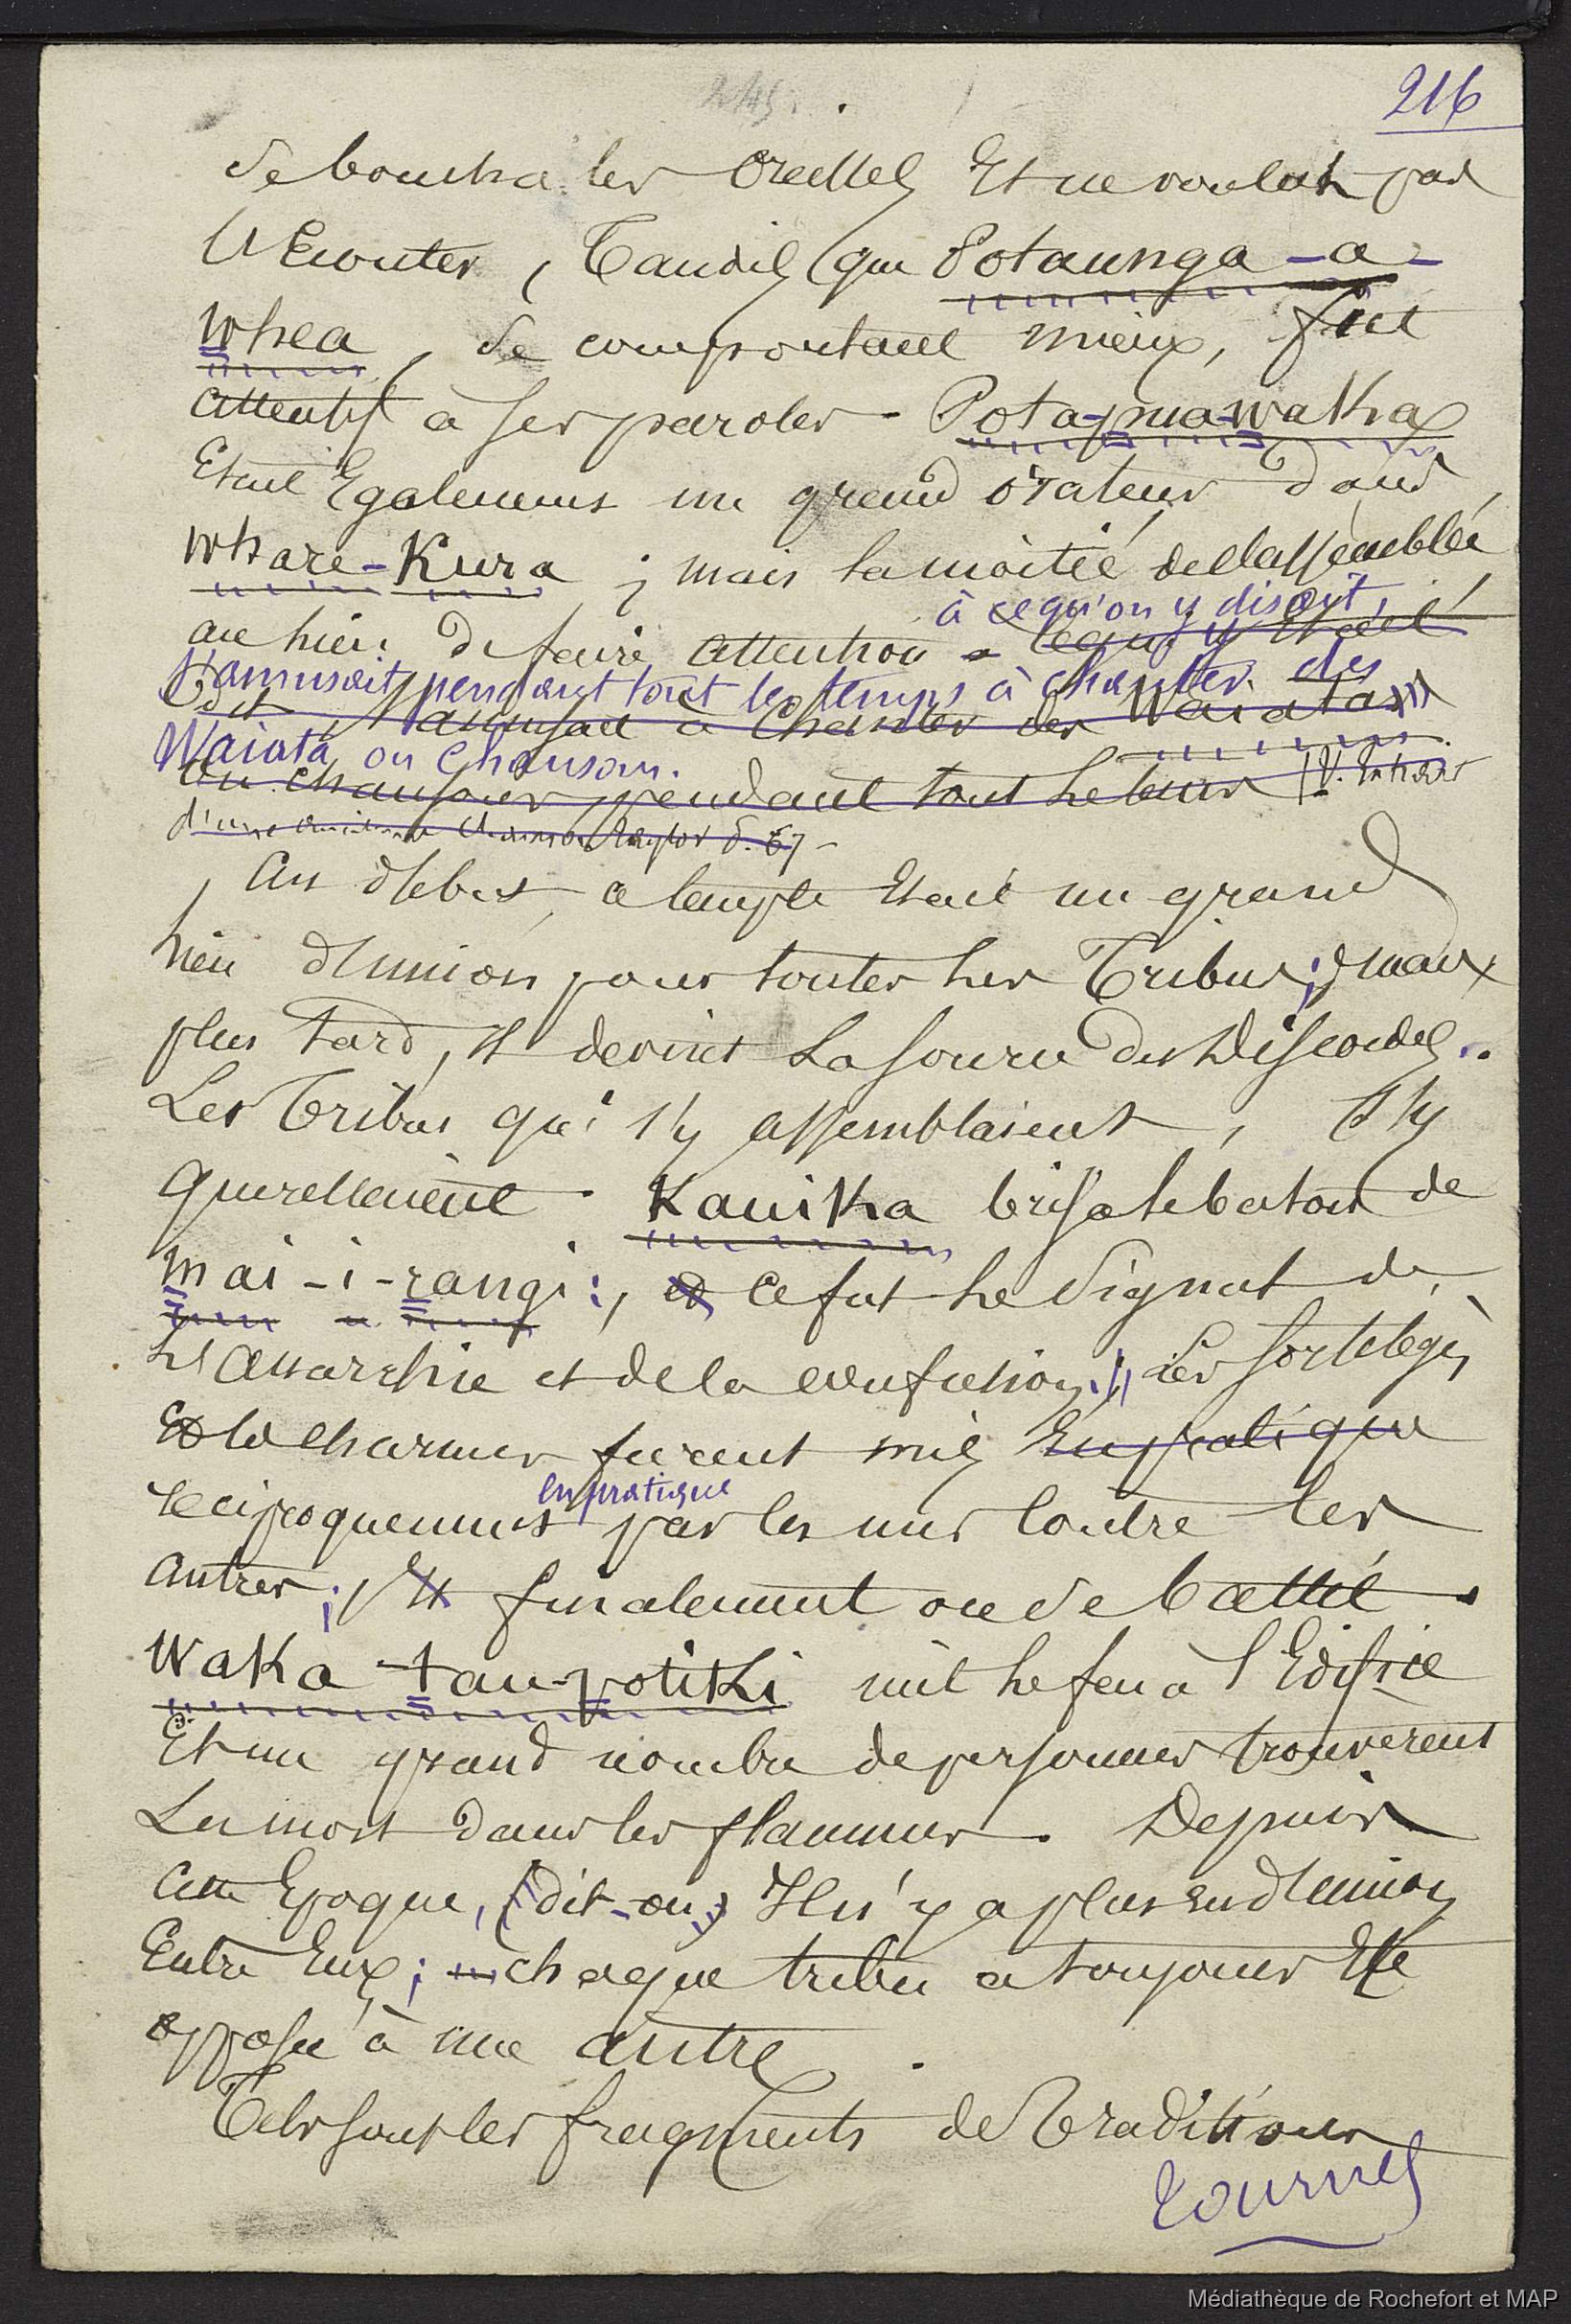 245.
216
se boucha les oreilles Et ne voulut pas
l'Ecouter, Tandis que Potaunga-a-
whea, se comportant mieux, fut
attentif à ses paroles. Potapua-waka,
Etait Egalement un grand orateur dans
whare-Kura; mais la moitié de l'assemblée,
à ce qu'on y disait,
au lieu de faire attention à ce qui y était
s'amusait pendant tout le temps à chanter des
dit, s'amusait à chanter des Waiatas
Waiata ou chansons.
ou chansons pendant tout le temps (V. Extrait
d'une ancienne chanson Taylor p. 67
Au début, ce temple Etait un grand
lieu d'union pour toutes les Tribus; mais
plus tard, il devint La source des Discordes..
Les Tribus qui s'y assemblaient, s'y
querellaient. Kauika brisa le baton de
Mai-i-rangi:, et ce fut le signal de
l'anarchie et de la confusion. Les sortileges
Et les charmes furent mis En pratique
en pratique
reciproquement par les uns contre les
autres; Et finalement on se battit.
Waka-tau-potiki mit le feu à l'Edifice
Et un grand nombre de personnes trouverent
La mort dans les flammes. Depuis
Cette Epoque, (dit-on) Il n'y a plus eu d'union
Entre Eux; chaque tribu a toujours Eté
opposée à une autre.
Tels sont les fragments de Traditions
Tournez
Médiathèque de Rochefort et MAP